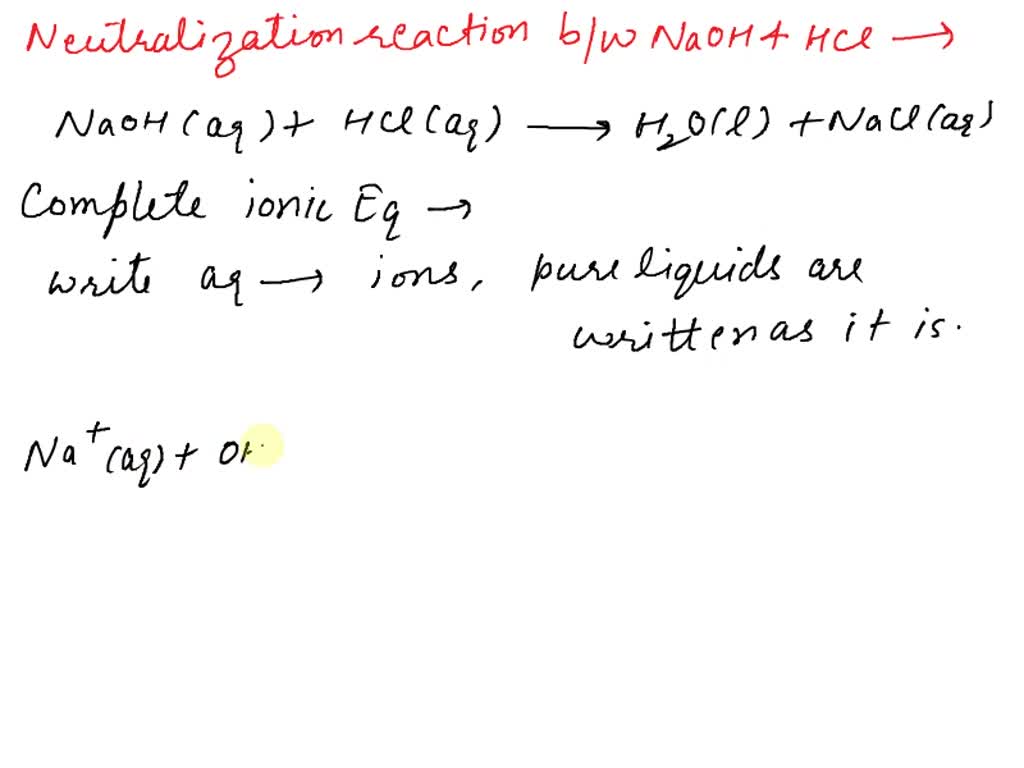 Neutralization reaction b/w NaOH + HCl →
NaOH (aq) + HCl (aq) → H₂O(l) + NaCl (aq)
Complete ionic Eq →
write aq → ions, pure liquids are
written as it is.
Na⁺ (aq) + O